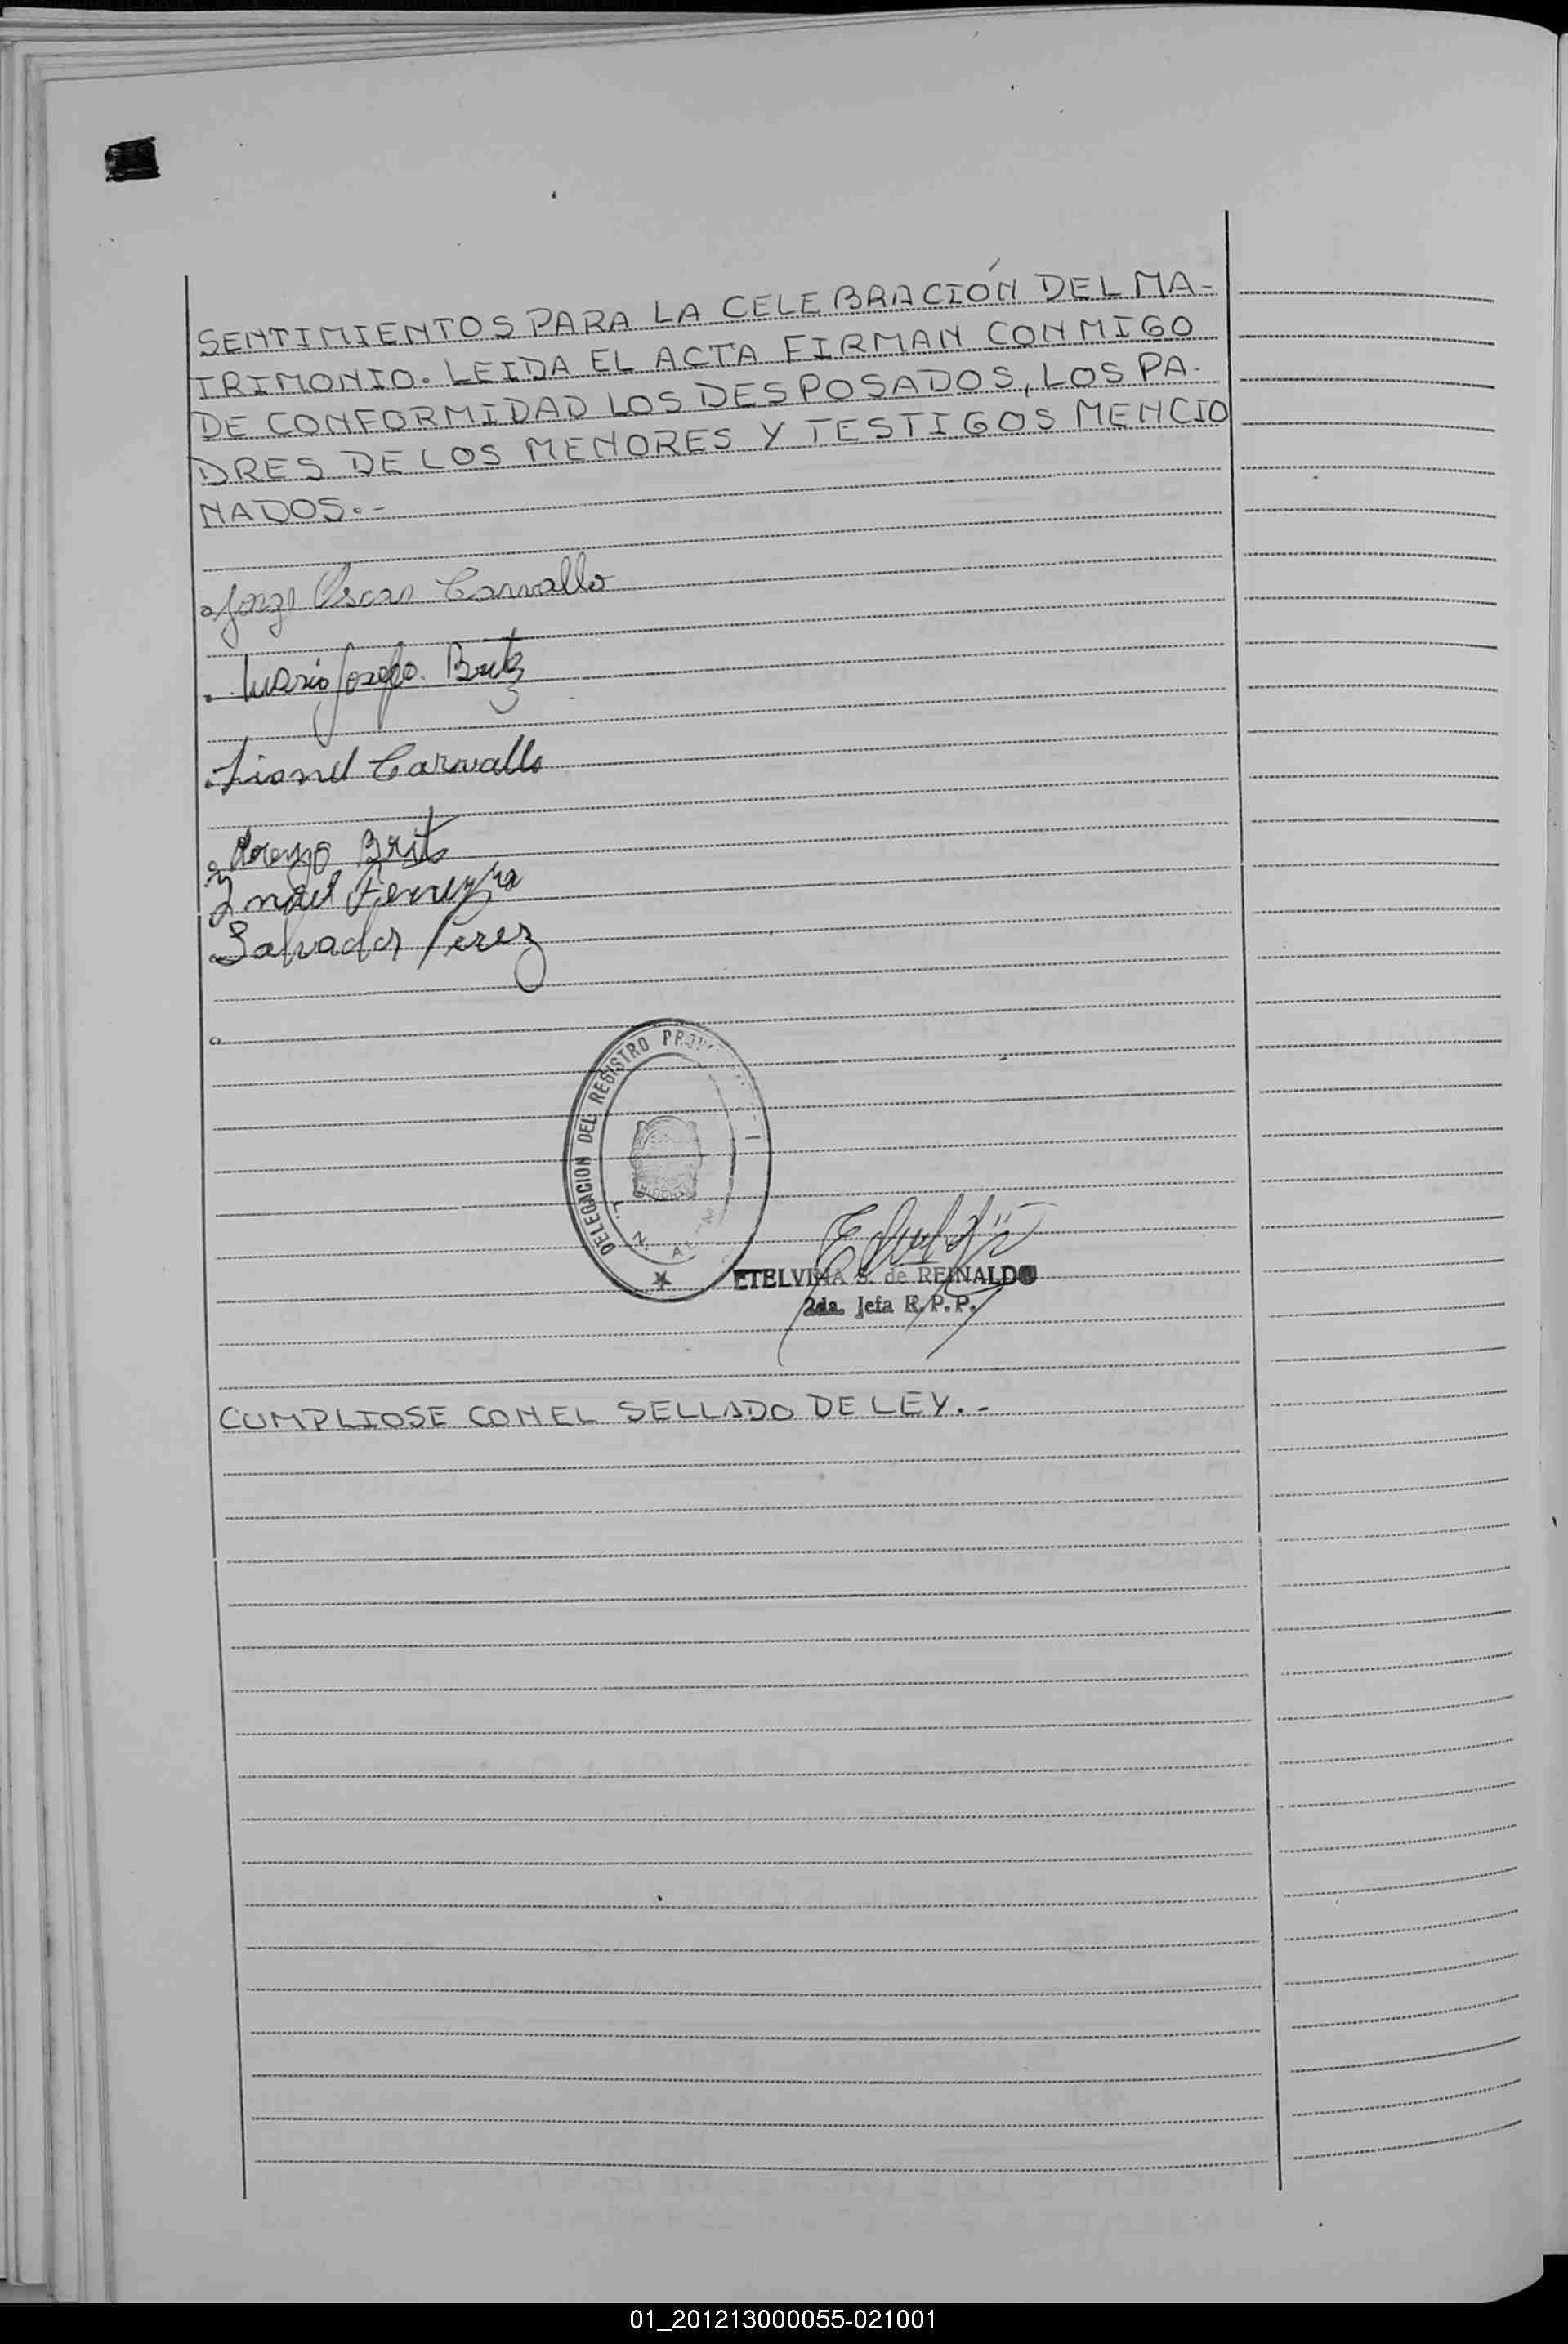 SENTIMIENTOS PARA LA CELEBRACIÓN DEL MA-
TRIMONIO. LEIDA EL ACTA FIRMAN CONMIGO
DE CONFORMIDAD LOS DESPOSADOS, LOS PA-
DRES DE LOS MENORES Y TESTIGOS MENCIO
NADOS.-
Jorge Oscar Carvallo
Josefa Britz
Lionel Carvallo
Lorenzo Brits
Ferreyra
Salvador Perez
DELEGACION DEL REGISTRO
ETELVINA S. de REINALDO
2da. Jefa R.P.P.
CUMPLIOSE CON EL SELLADO DE LEY.-
01_201213000055-021001